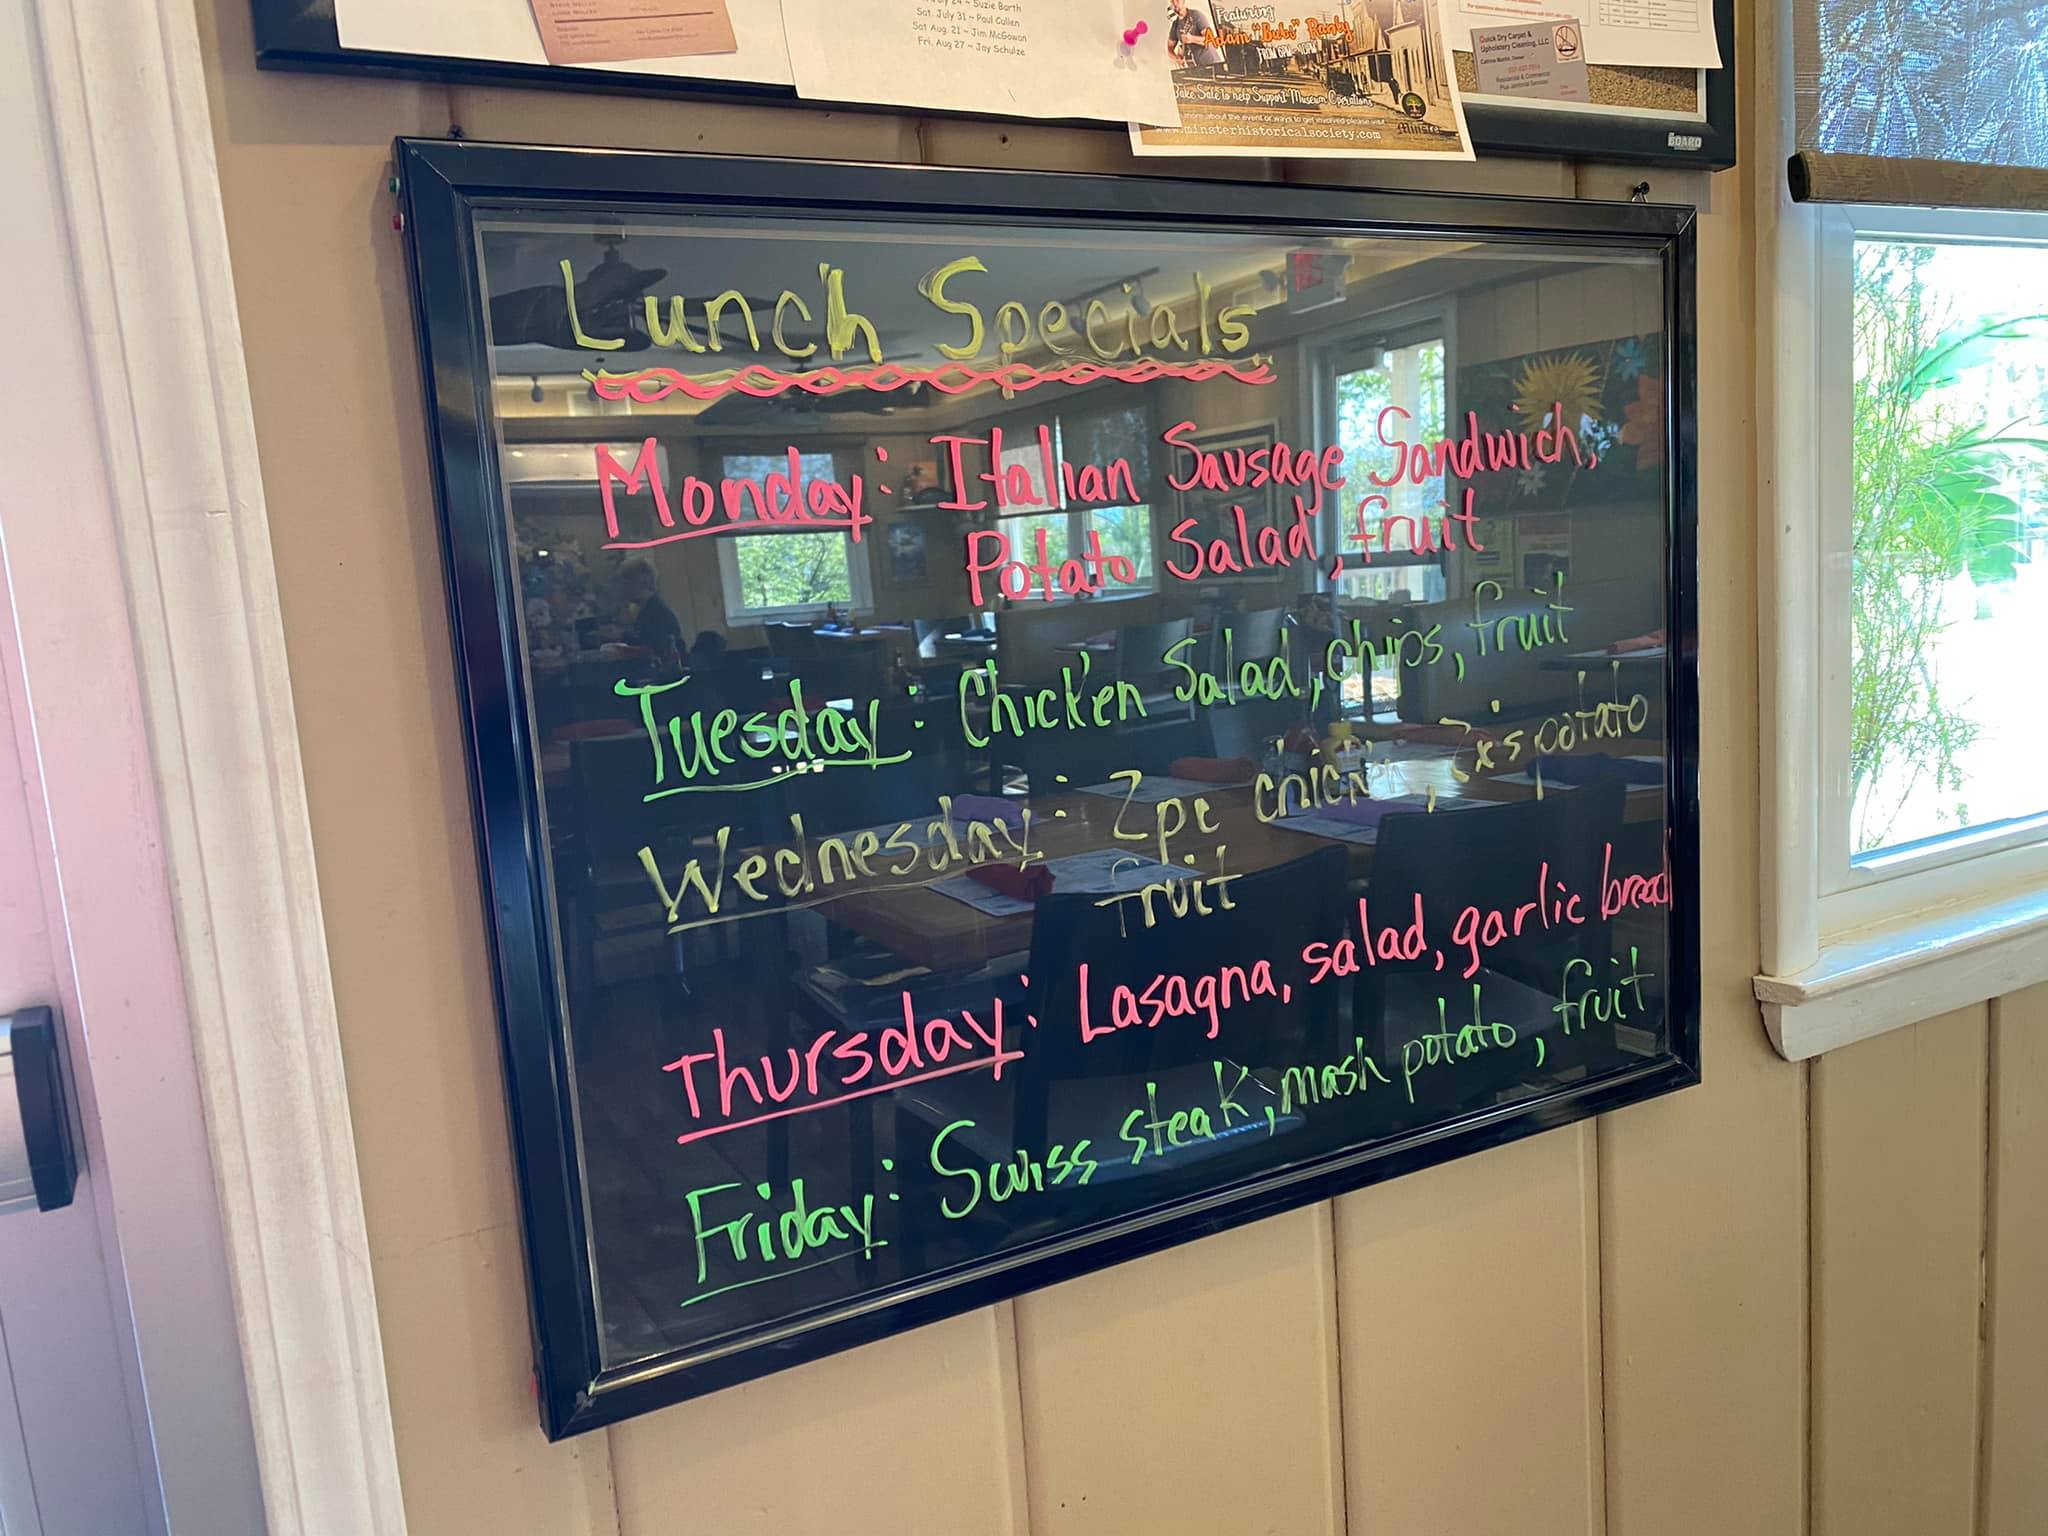 Suzie Barth
Sat. July 31 ~ Paul Cullen
Sat Aug. 21 ~ Jim McGowan
Fri. Aug 27 ~ Jay Schulze
Featuring
Adam "Bubs" Raney
FROM 6PM - 10PM
Bake Sale to help Support Museum Operations
more about the event or ways to get involved please visit
www.minsterhistoricalsociety.com
Minster
Quick Dry Carpet &
Upholstery Cleaning, LLC
Residential & Commercial
Plus Janitorial Services
BOARD
Lunch Specials
Monday: Italian Sausage Sandwich,
Potato Salad, fruit
Tuesday: Chicken Salad, chips, fruit
Wednesday: 2pc chicken, Zxs potato
fruit
Thursday: Lasagna, salad, garlic bread
Friday: Swiss steak, mash potato, fruit